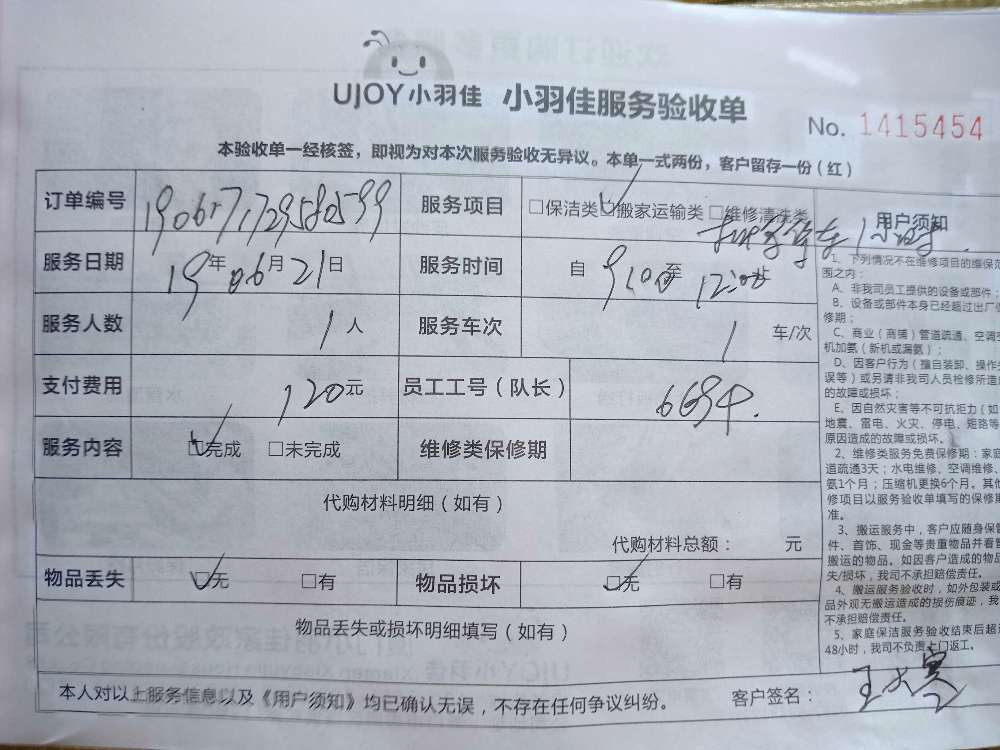 UJOY小羽佳 小羽佳服务验收单
No. 1415454
本验收单一经核签，即视为对本次服务验收无异议。本单一式两份，客户留存一份（红）
订单编号 服务项目 □保洁类 □搬家运输类 □维修清洗类
服务日期 19年06月21日 服务时间 自 9:00至 12:00止
服务人数 1人 服务车次 1 车/次
支付费用 120元 员工工号（队长） 6694
服务内容 □完成 □未完成 维修类保修期
代购材料明细（如有）
代购材料总额： 元
物品丢失 □无 □有 物品损坏 □无 □有
物品丢失或损坏明细填写（如有）
本人对以上服务信息以及《用户须知》均已确认无误，不存在任何争议纠纷。 客户签名：
用户须知
1、下列情况不在维修项目的维保范
围之内：
A、非我司员工提供的设备或部件；
B、设备或部件本身已经超过出厂
修期；
C、商业（商铺）管道疏通、空调
机加氨（新机或漏氨）；
D、因客户行为（擅自装卸、操作
误等）或另请非我司人员检修所造
的故障或损坏；
E、因自然灾害等不可抗拒力（如
地震、雷电、火灾、停电、短路等
原因造成的故障或损坏。
2、维修类服务免费保修期：家庭
道疏通3天；水电维修、空调维修、
氨1个月；压缩机更换6个月。其他
修项目以服务验收单填写的保修期
准。
3、搬运服务中，客户应随身保管
件、首饰、现金等贵重物品并看管
搬运的物品。如因客户造成的物品
失/损坏，我司不承担赔偿责任。
4、搬运服务验收时，如外包装或
品外观无搬运造成的损伤痕迹，我
不承担赔偿责任。
5、家庭保洁服务验收结束后超过
48小时，我司不负责上门返工。